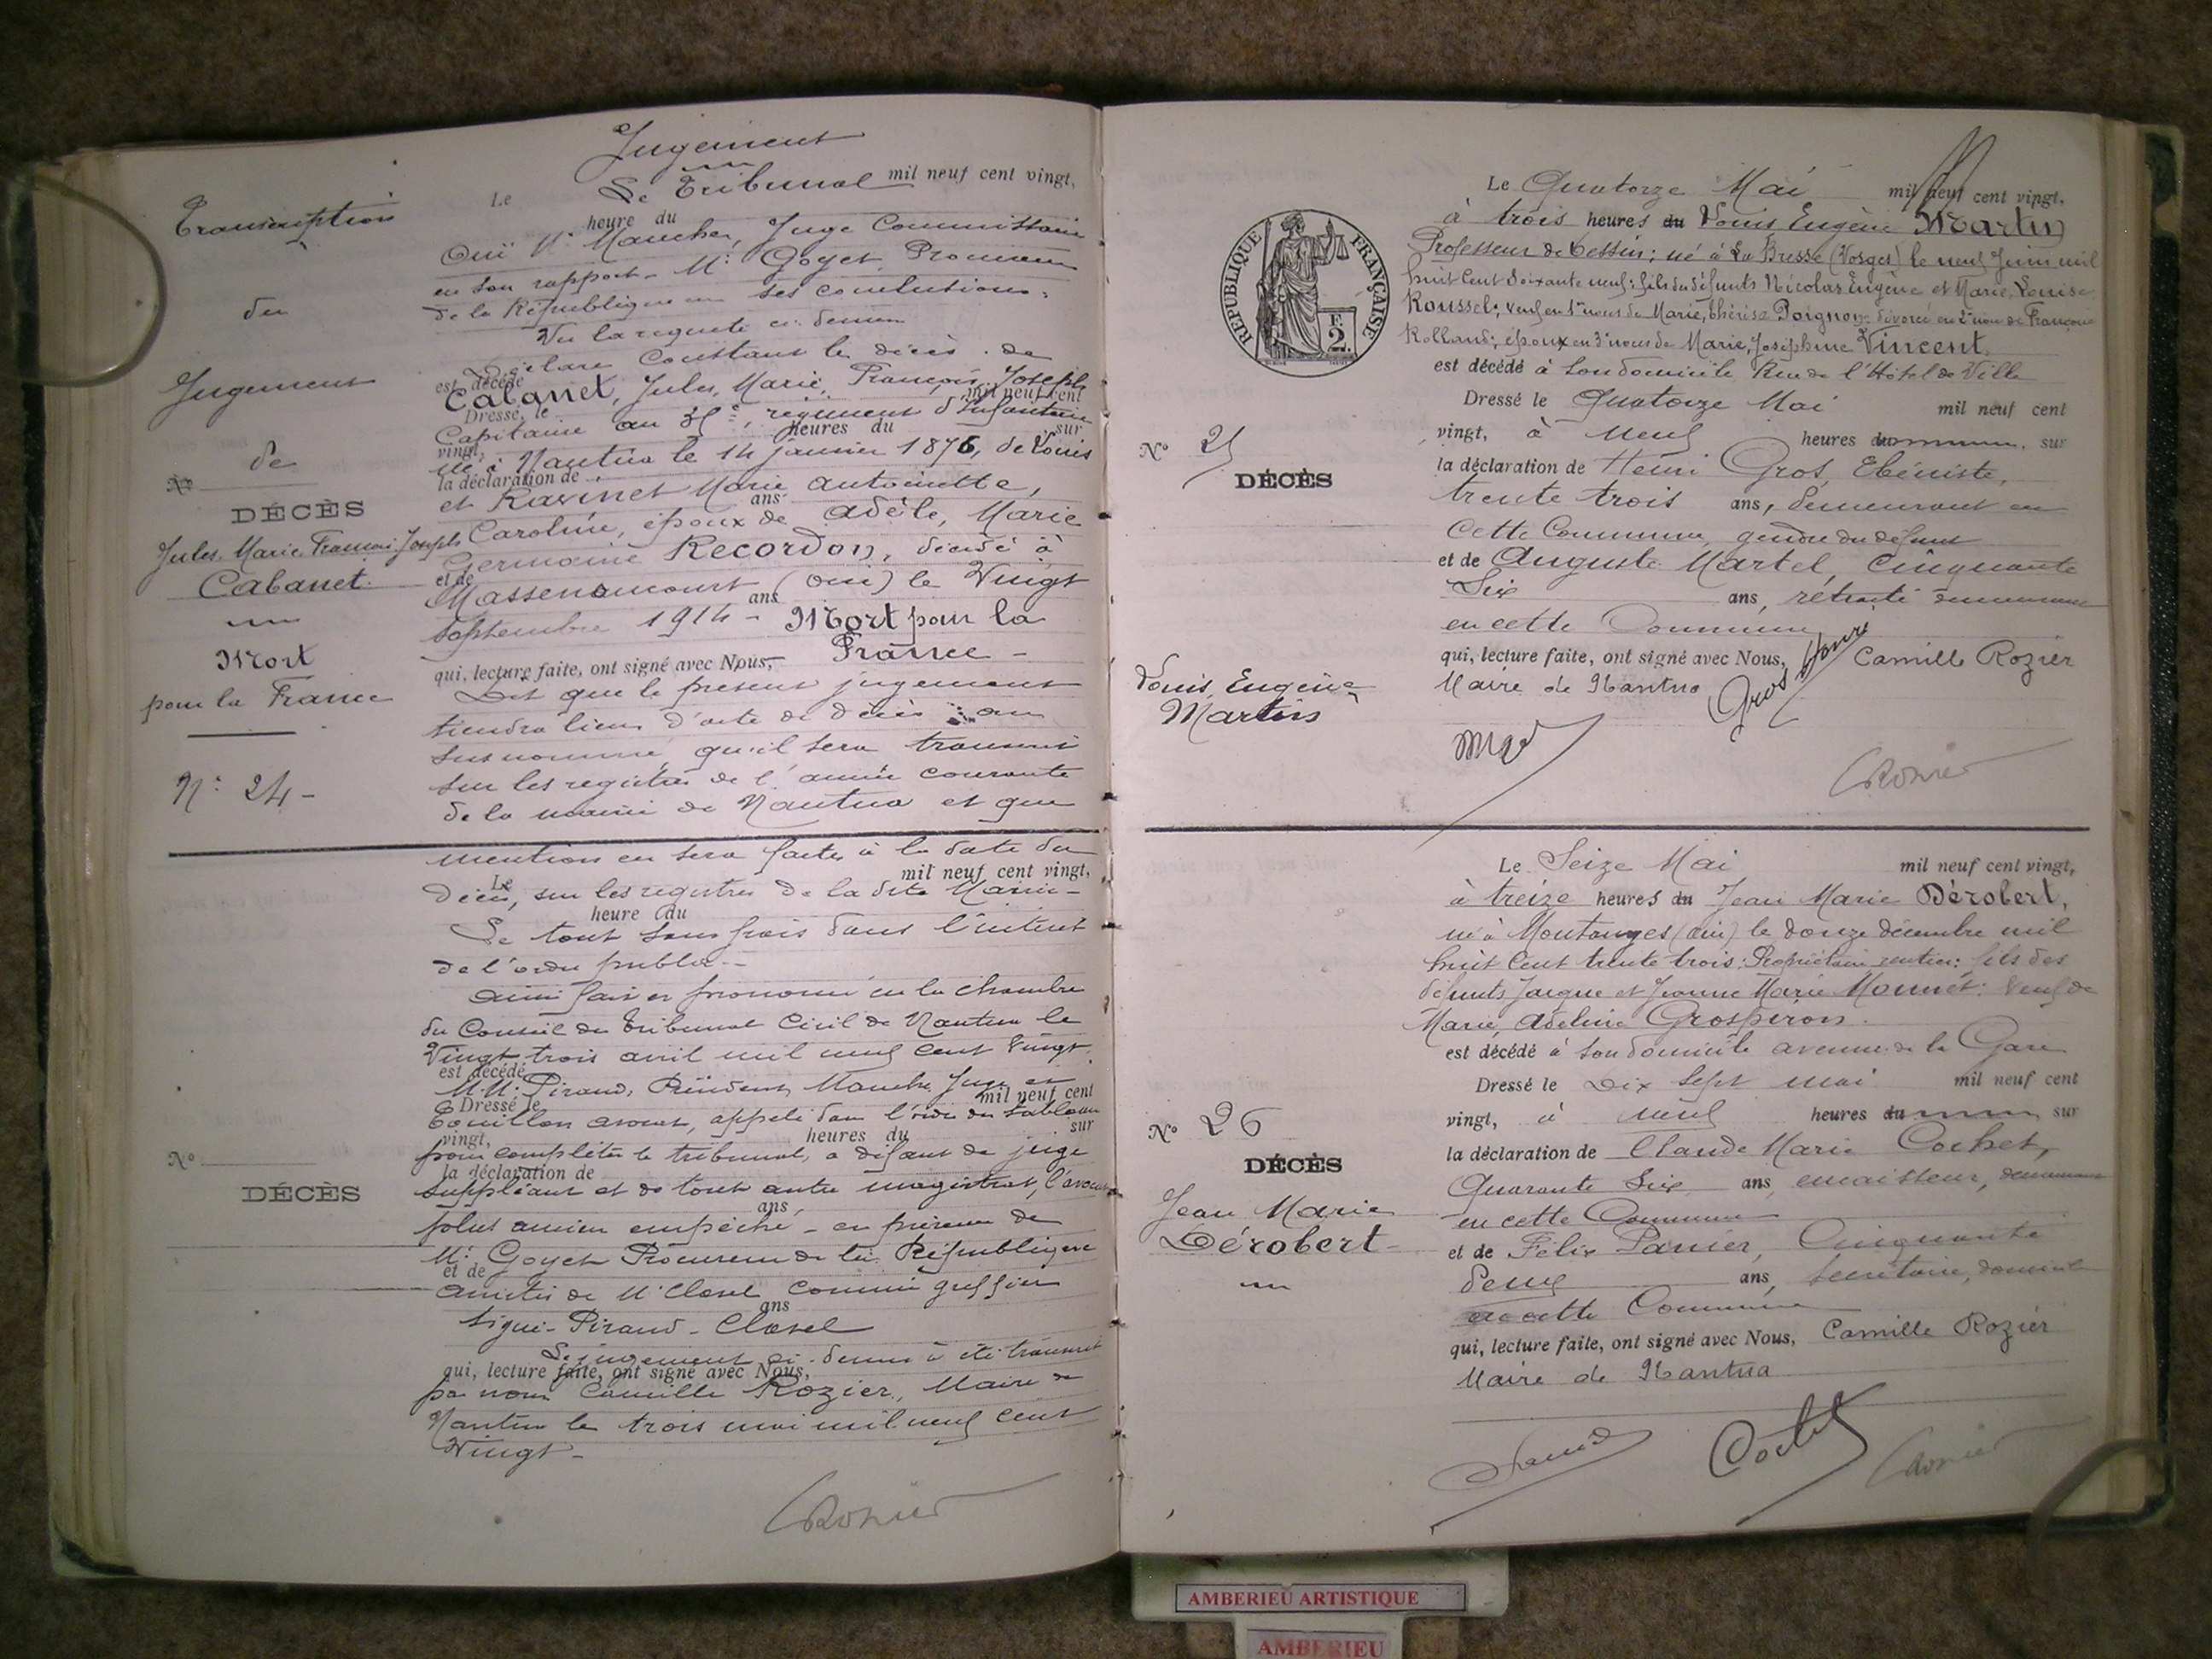 Transcription
du
Jugement
de
No
DÉCÈS
Jules, Marie François Joseph
Cabanet
Mort
pour la France
No 24 -
Jugement
Le Le Tribunal mil neuf cent vingt,
heure du
Ouï Mr Maucher, Juge Commissaire
en son rapport - Mr Goyet Procureur
de la République en ses conclusions;
Vu la requête ci-dessus
Déclare Constant le décès de
est décédé
Cabanet, Jules, Marie, François, Joseph
Dressé, le mil neuf cent
Capitaine au régiment d'Infanterie
vingt, heures du sur
né à Nantua le 14 janvier 1876, de Louis
la déclaration de
et Ravinet Marie antoinette,
ans
Caroline, époux de Adèle, Marie
Germaine Recordon, décédé à
et de
(Oise) le Vingt
ans
Septembre 1914 - Mort pour la
France -
qui, lecture faite, ont signé avec Nous,
Dit que le présent jugement
tiendra lieu d'acte de décès au
susnommé, qu'il sera transcrit
sur les registres de l'année courante
de la mairie de Nantua et que
mention en sera faite à la date du
Le mil neuf cent vingt,
décès, sur les registres de la dite Mairie -
heure du
Le tout sans frais dans l'intérêt
de l'ordre public -
ainsi fait et prononcé en la chambre
du Conseil du Tribunal Civil de Nantua le
Vingt trois avril mil neuf cent vingt.
est décédé
MM. Piraud, Président, Maucher Juge et
Dressé le mil neuf cent
avocat, appelé dans l'ordre du tableau
vingt, heures du sur
pour compléter le tribunal, à défaut de juge
No
DÉCÈS
la déclaration de
suppléant et de tout autre magistrat, l'avocat
ans
plus ancien empêché - en présence de
Mr Goyet Procureur de la République
et de
assistés de Mr Clasel Commis greffier
ans
Signé - Piraud - Clasel
Le jugement ci-dessus a été transcrit
qui, lecture faite, ont signé avec Nous,
par nous Camille Rozier, Maire de
Nantua le trois mai mil neuf cent
Vingt -
CRozier
RÉPUBLIQUE FRANÇAISE
2F.
No 25
DÉCÈS
Louis, Eugène
Martin
Le Quatorze Mai mil neuf cent vingt,
à trois heures du Louis Eugène Martin
Professeur de Dessin; né à La Bresse (Vosges) le neuf Juin mil
huit Cent Soixante neuf; fils des défunts Nicolas Eugène et Marie, Louise
Roussel; veuf en 1res noces de Marie, Thérèse Poignon; divorcé en 2e noces de Françoise
Rolland; époux en 3e noces de Marie, Joséphine Vincent,
est décédé à son domicile Rue de l'Hôtel de Ville
Dressé le Quatorze Mai mil neuf cent
vingt, à neuf heures du sur
la déclaration de Henri Gros, Ebéniste,
trente trois ans, demeurant en
Cette Commune, gendre du défunt
et de Auguste Martel, Cinquante
Six ans, retraité demeurant
en cette Commune
qui, lecture faite, ont signé avec Nous, Camille Rozier
Maire de Nantua
Gros Henri
CRozier
No 26
DÉCÈS
Jean Marie
Dérobert
Le Seize Mai mil neuf cent vingt,
à treize heures du Jean Marie Dérobert,
né à Montanges (ain) le douze décembre mil
huit Cent trente trois; Propriétaire rentier; fils des
défunts Jacque et Jeanne Marie Mounet; Veuf de
Marie, Adeline Grospiron.
est décédé à son domicile avenue de la Gare
Dressé le Dix Sept mai mil neuf cent
vingt, à neuf heures du sur
la déclaration de Claude Marie Cochet,
Quarante Six ans, encaisseur, demeurant
en cette Commune
et de Félix Panier, Cinquante
deux ans, secrétaire, domicilié
en cette Commune
qui, lecture faite, ont signé avec Nous, Camille Rozier
Maire de Nantua
Cochet
CRozier
AMBERIEU ARTISTIQUE
AMBERIEU